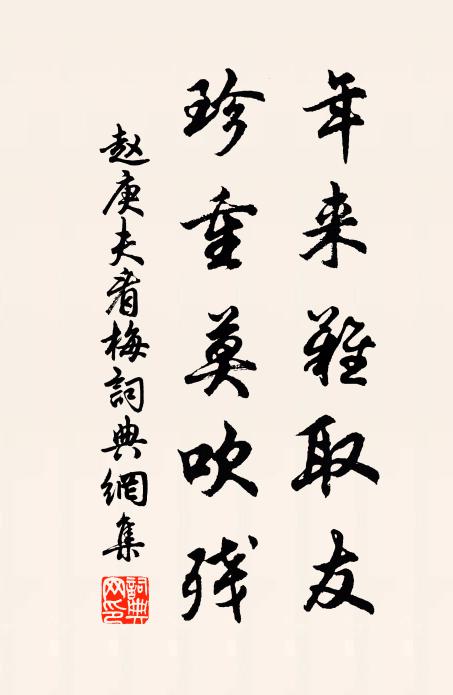 年来難取友
珍重莫吹残
赵庚夫看梅詞典網集
詞典网印